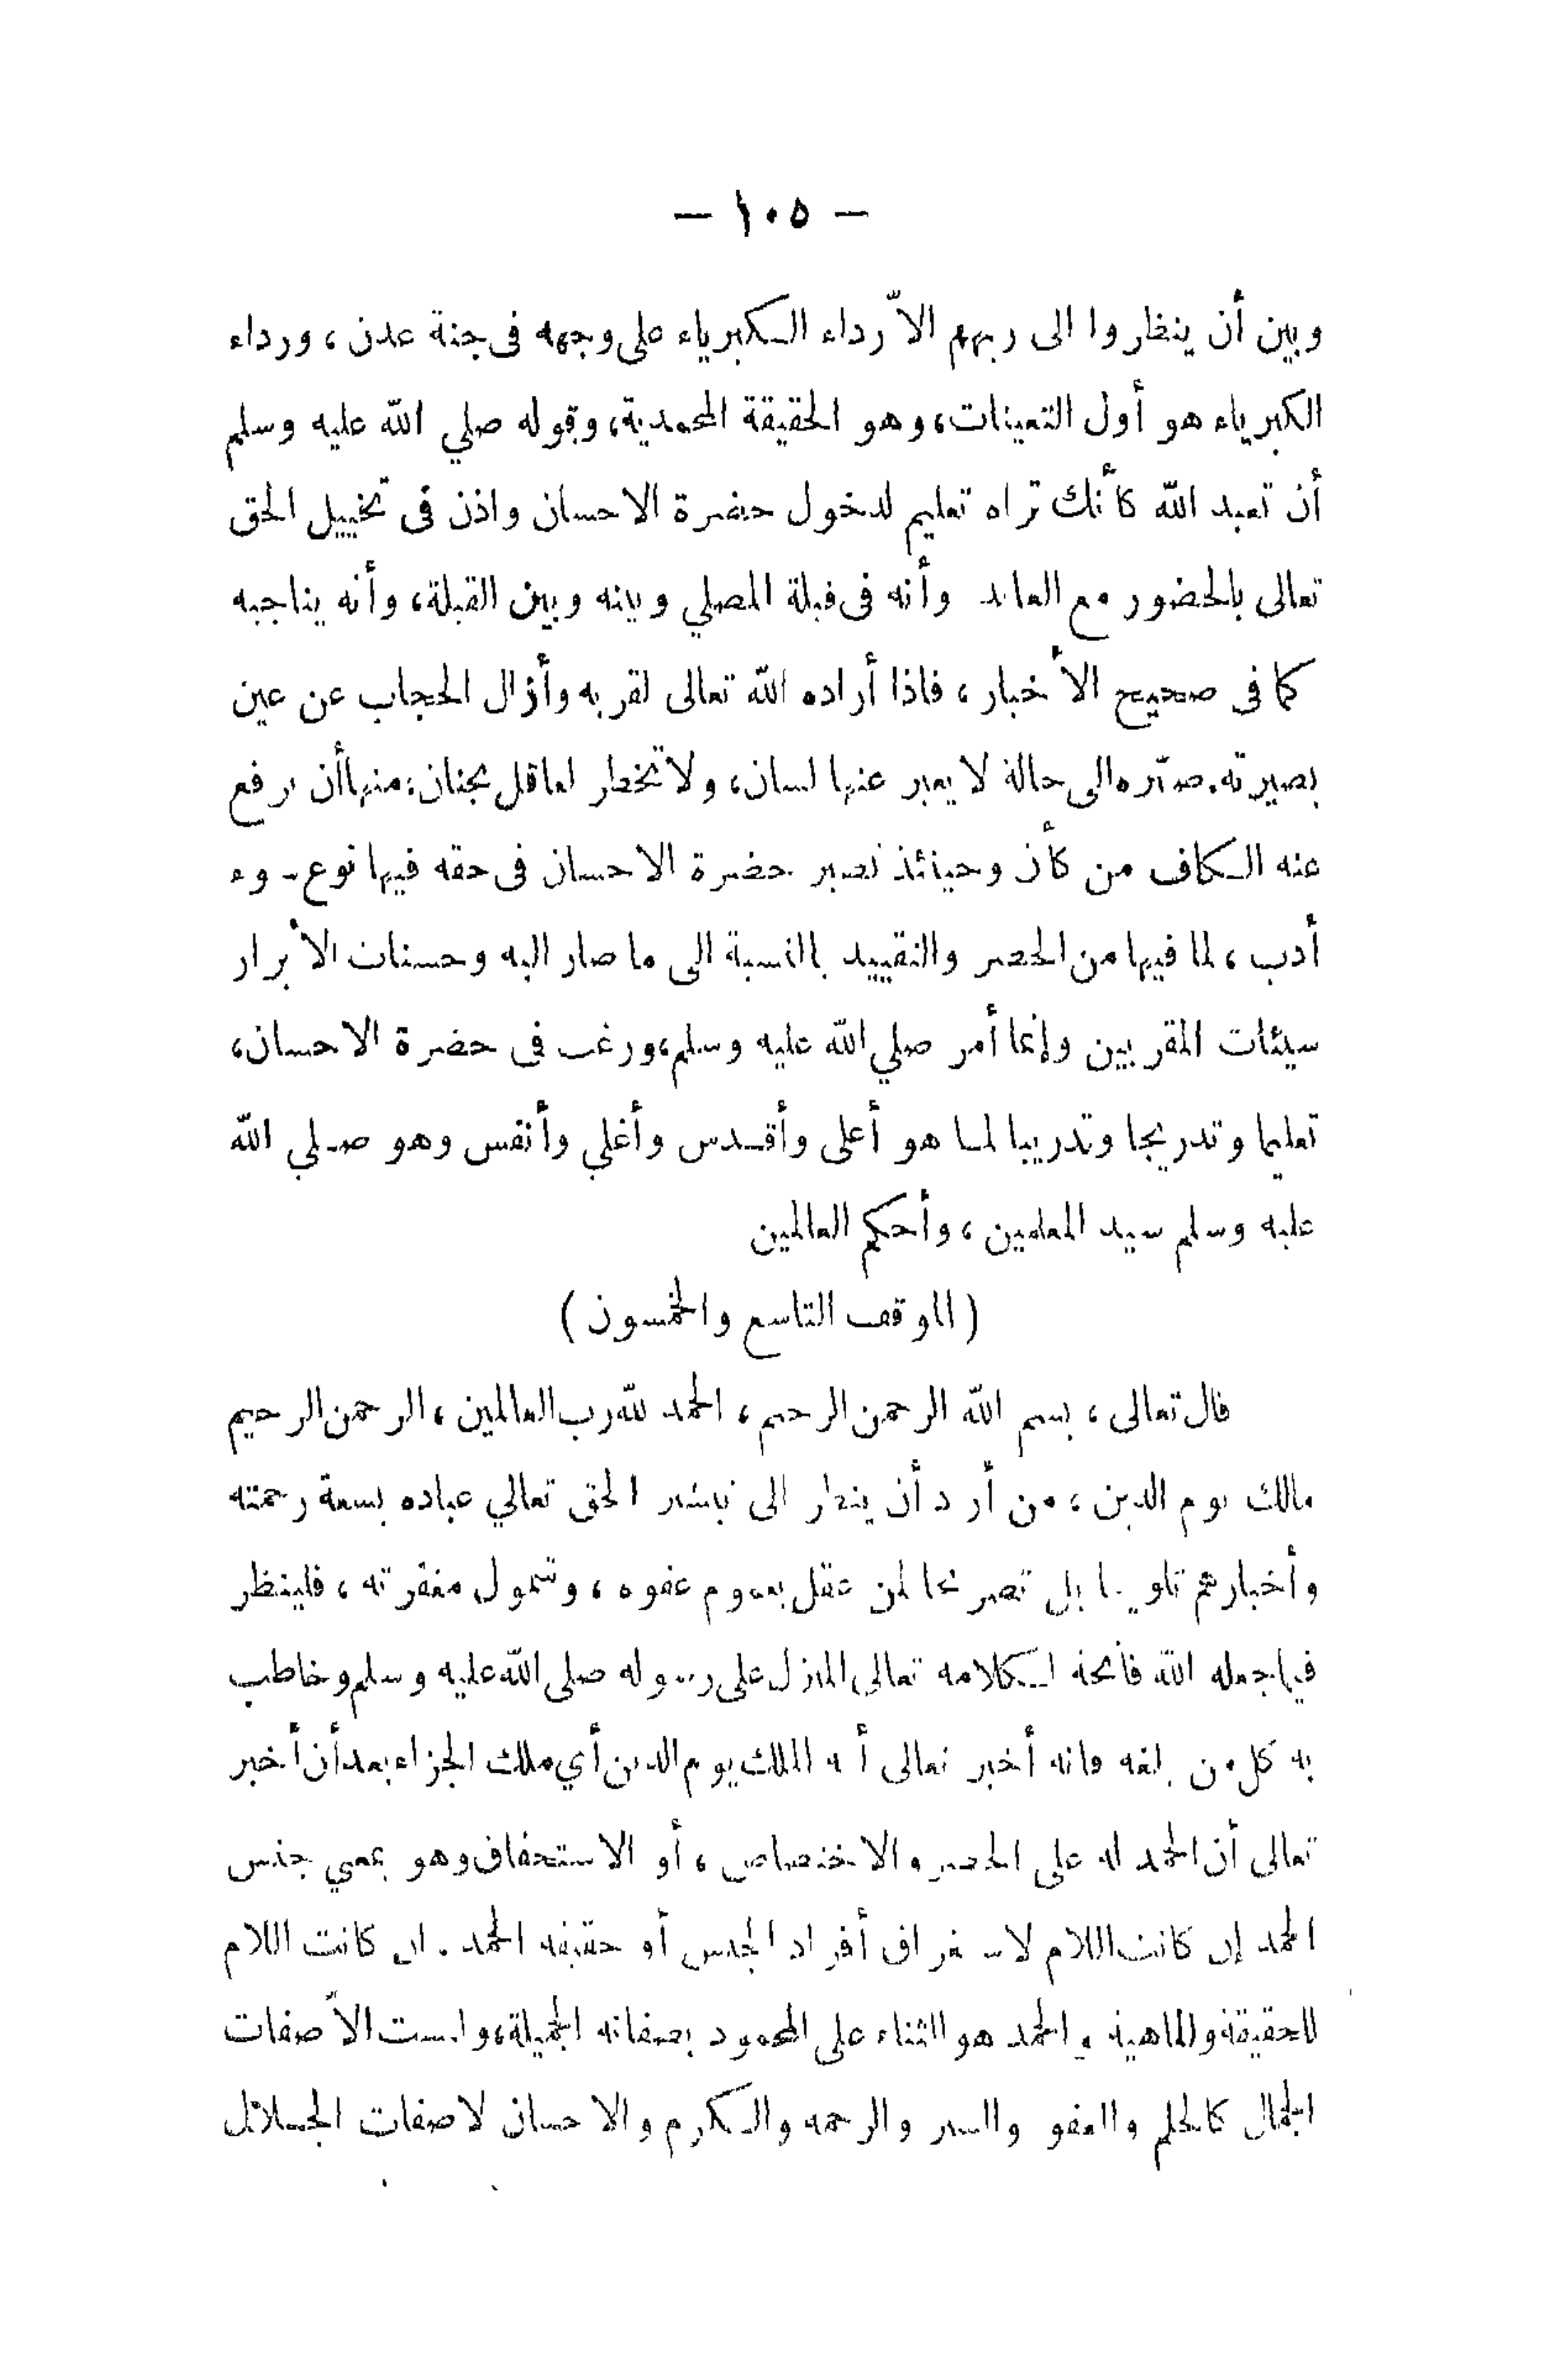 — ١٠٥ —
وبين أن ينظروا الى ربهم الاّ رداء الكبرياء على وجهه فى جنة عدن ، ورداء
الكبرياء هو أول التعينات، وهو الحقيقة المحمدية، وقوله صلي الله عليه وسلم
أن تعبد الله كأنك تراه تعليم لدخول حضرة الاحسان واذن فى تخييل الحق
تعالى بالحضور مع العابد وأنه فى قبلة المصلي وبينه وبين القبلة، وأنه يناجيه
كما فى صحيح الأخبار ، فاذا أراده الله تعالى لقربه وأزال الحجاب عن عين
بصيرته. صيّره الى حالة لا يعبر عنها لسان، ولا تخطر لعاقل بجنان: منها أن يرفع
عنه الكاف من كأن وحينئذ تصير حضرة الاحسان فى حقه فيها نوع سوء
أدب ، لما فيها من الحصر والتقييد بالنسبة الى ما صار اليه وحسنات الأبرار
سيئات المقربين وإنما أمر صلي الله عليه وسلم، ورغب فى حضرة الاحسان،
تعليما وتدريجا وتدريبا لما هو أعلى وأقدس وأغلي وأنفس وهو صلي الله
عليه وسلم سيد المعلمين ، وأحكم العالمين
( الموقف التاسع والخمسون )
قال تعالى ، بسم الله الرحمن الرحيم ، الحمد لله رب العالمين ، الرحمن الرحيم
مالك يوم الدين ، من أراد أن ينظر الى تبشير الحق تعالي عباده بسعة رحمته
وأخبارهم تلويحا بل تصريحا لمن عقل بعموم عفوه ، وشمول مغفرته ، فلينظر
فيما جعله الله فاتحة لكلامه تعالى المنزل على رسوله صلى الله عليه وسلم وخاطب
به كل من بلغه فانه أخبر تعالى أنه الملك يوم الدين أي ملك الجزاء بعد أن أخبر
تعالى أن الحمد له على الحصر والاختصاص ، أو الاستحقاق وهو بمعي جنس
الحمد إن كانت اللام لاستغراق أفراد الجنس أو حقيقة الحمد . ان كانت اللام
للحقيقة والماهية . والحمد هو الثناء على المحمود بصفاته الجميلة، وليست الاّ صفات
الجمال كالحلم والعفو والستر والرحمه والكرم والاحسان لا صفات الجلال